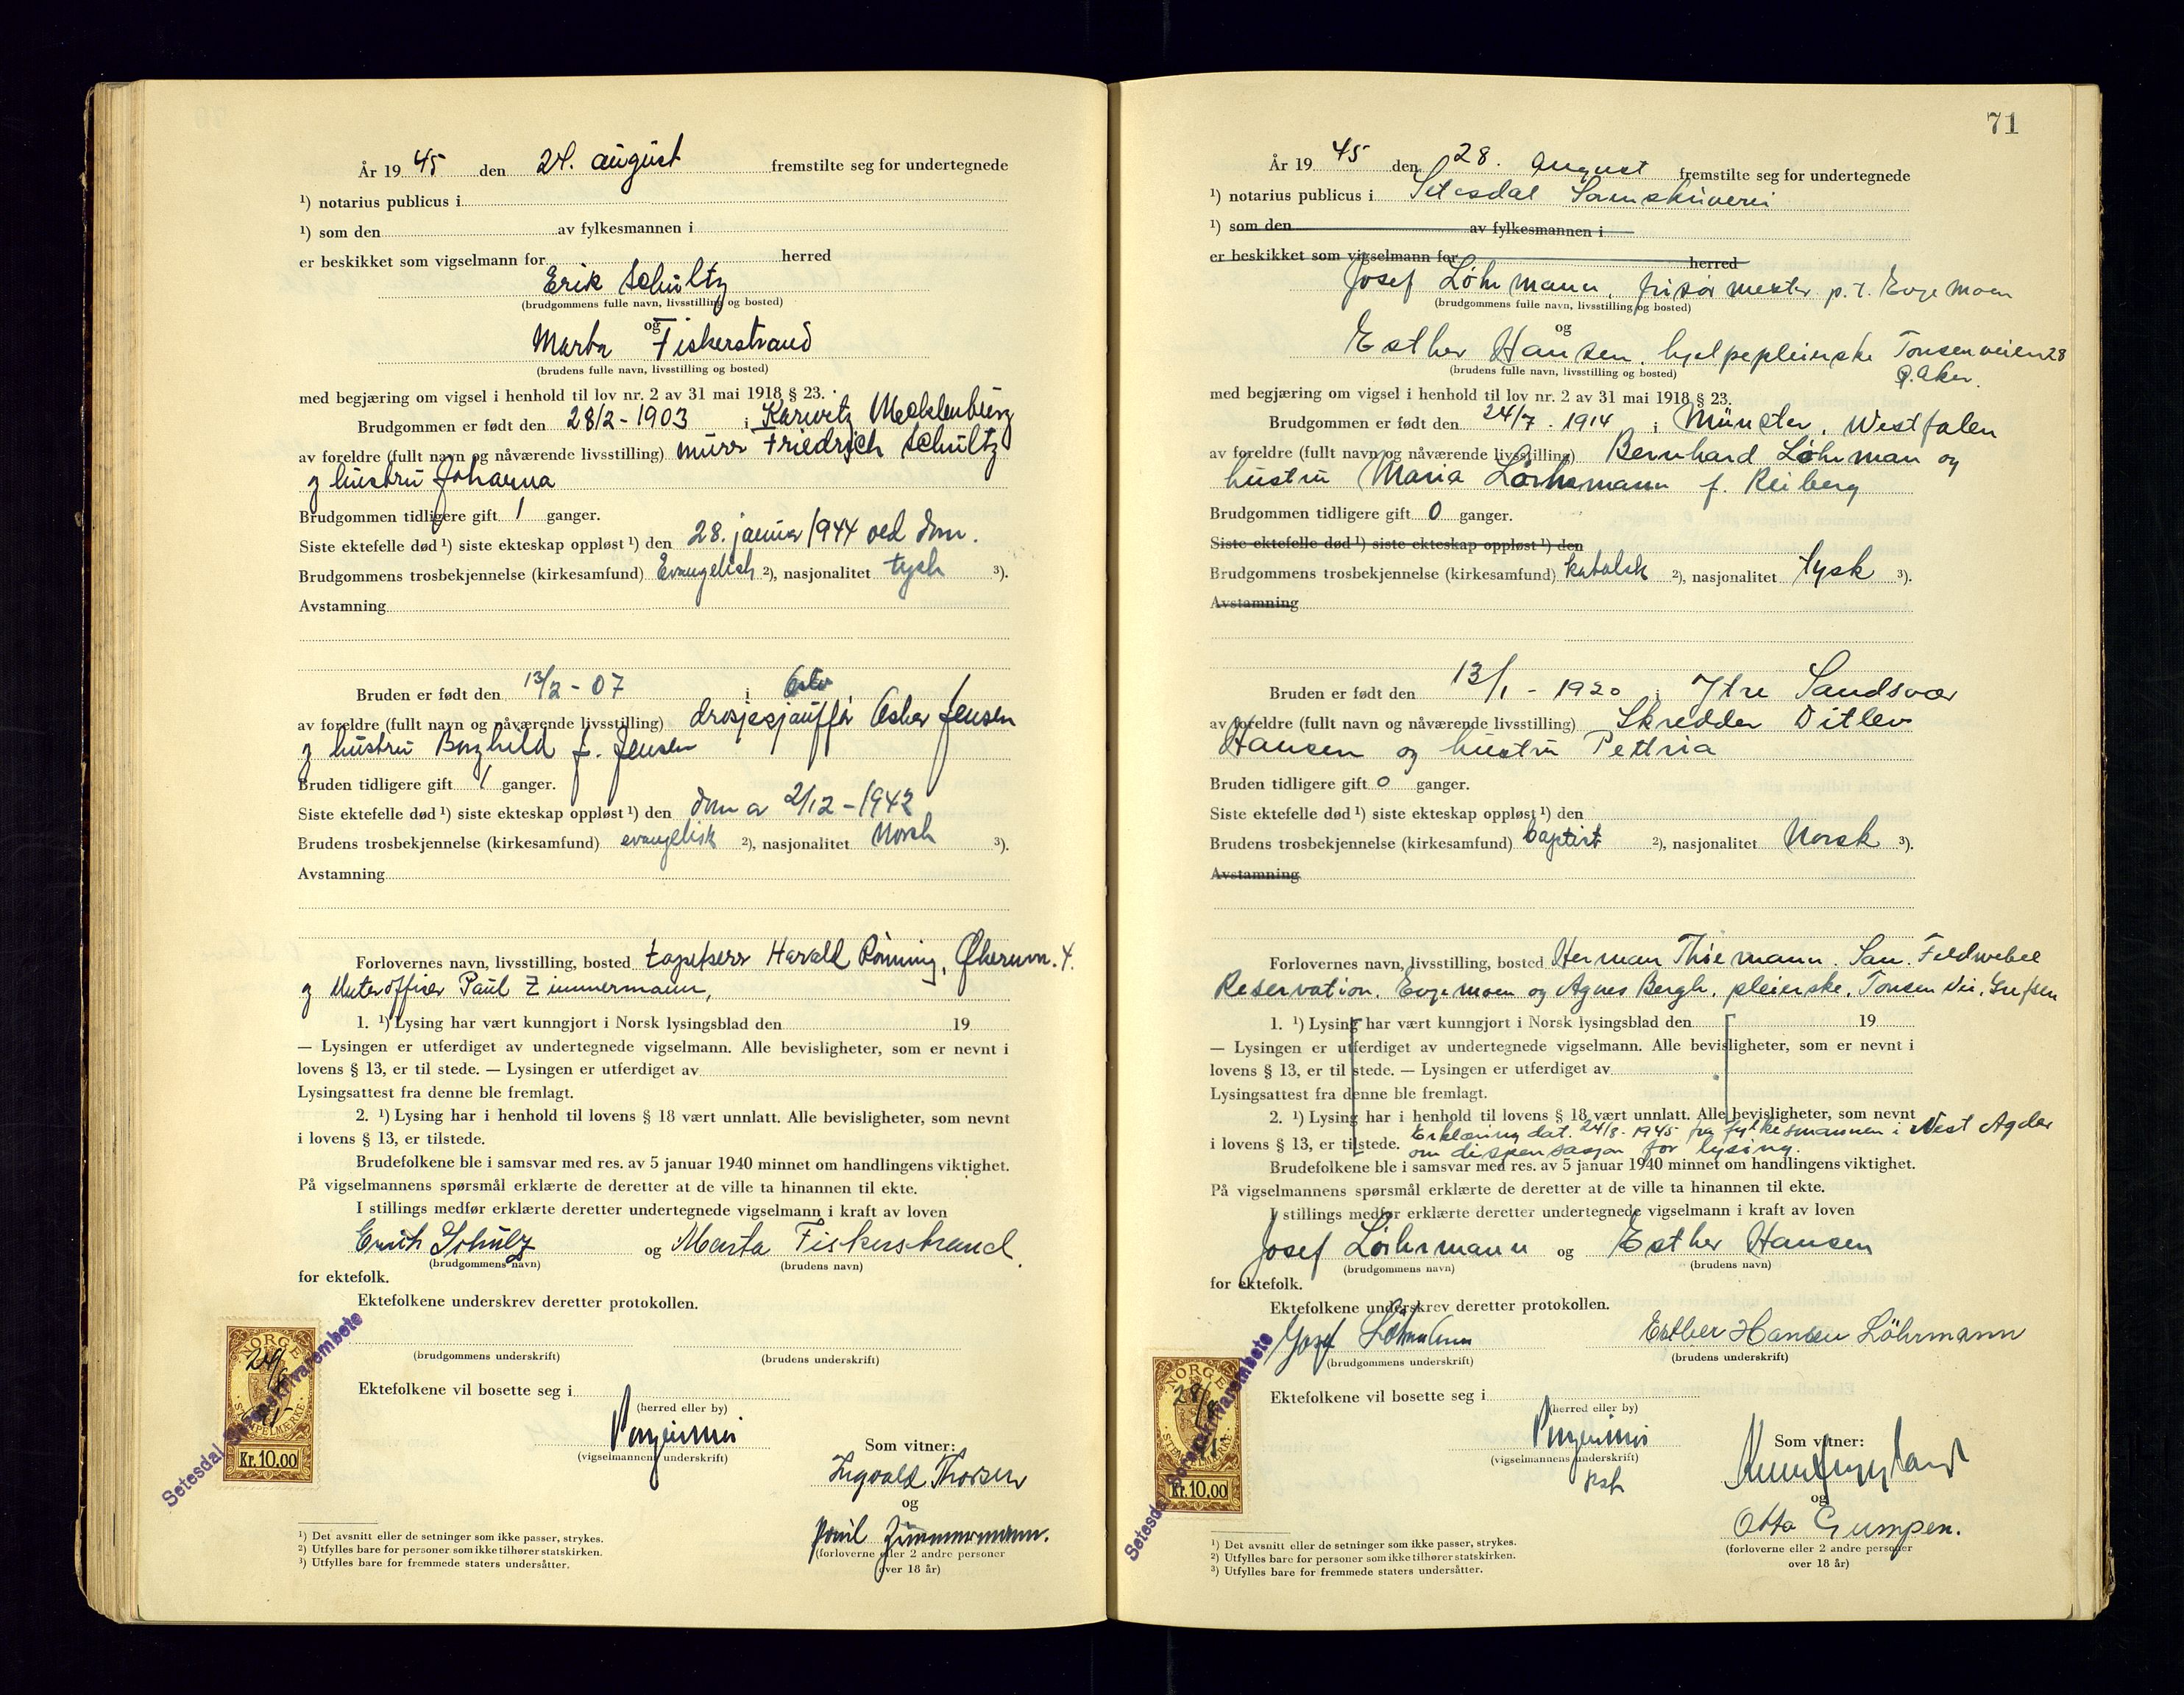 År 19 45 den 24. august fremstilte seg for undertegnede
¹) notarius publicus i
¹) som den av fylkesmannen i
er beskikket som vigselmann for herred
Erik Schultz
(brudgommens fulle navn, livsstilling og bosted)
og
Marta Fiskerstrand
(brudens fulle navn, livsstilling og bosted)
med begjæring om vigsel i henhold til lov nr. 2 av 31 mai 1918 § 23.
Brudgommen er født den 28/2 - 1903 i Karwitz Mecklenburg
av foreldre (fullt navn og nåværende livsstilling) murer Friedrich Schultz
og hustru Johanna
Brudgommen tidligere gift 1 ganger.
Siste ektefelle død ¹) siste ekteskap oppløst ¹) den 28. januar 1944 ved dom.
Brudgommens trosbekjennelse (kirkesamfund) Evangelisk ²), nasjonalitet tysk ³).
Avstamning
Bruden er født den 13/2 - 07 i Oslo
av foreldre (fullt navn og nåværende livsstilling) drosjesjauffør Oskar Jensen
og hustru Borghild f. Jensen
Bruden tidligere gift 1 ganger.
Siste ektefelle død ¹) siste ekteskap oppløst ¹) den dom a 2/12 - 1942
Brudens trosbekjennelse (kirkesamfund) evangelisk ²), nasjonalitet Norsk ³).
Avstamning
Forlovernes navn, livsstilling, bosted tapetserer Harald Rønning, Økernvn. 4.
og Unteroffizier Paul Zimmermann,
1. ¹) Lysing har vært kunngjort i Norsk lysingsblad den 19
— Lysingen er utferdiget av undertegnede vigselmann. Alle bevisligheter, som er nevnt i
lovens § 13, er til stede. — Lysingen er utferdiget av
Lysingsattest fra denne ble fremlagt.
2. ¹) Lysing har i henhold til lovens § 18 vært unnlatt. Alle bevisligheter, som nevnt
i lovens § 13, er tilstede.
Brudefolkene ble i samsvar med res. av 5 januar 1940 minnet om handlingens viktighet.
På vigselmannens spørsmål erklærte de deretter at de ville ta hinannen til ekte.
I stillings medfør erklærte deretter undertegnede vigselmann i kraft av loven
Erich Schulz og Marta Fiskerstrand.
(brudgommens navn) (brudens navn)
for ektefolk.
Ektefolkene underskrev deretter protokollen.
(brudgommens underskrift) (brudens underskrift)
Ektefolkene vil bosette seg i
(herred eller by)
(vigselmannens underskrift)
Som vitner:
Ingvald Thorsen
og
Paul Zimmermann.
(forloverne eller 2 andre personer
over 18 år)
NORGE
24/8
45
STEMPELMERKE
Kr. 10.00
Setesdal Sorenskrivarembete
¹) Det avsnitt eller de setninger som ikke passer, strykes.
²) Utfylles bare for personer som ikke tilhører statskirken.
³) Utfylles bare for fremmede staters undersåtter.
71
År 19 45 den 28. august fremstilte seg for undertegnede
¹) notarius publicus i Setesdal Sorenskriveri
¹) som den av fylkesmannen i
er beskikket som vigselmann for herred
Josef Löhrmann, frisørmester p.t. Evjemoen
(brudgommens fulle navn, livsstilling og bosted)
og
Esther Hansen, hjelpepleierske Tonsenveien 28
Ø. Aker.
(brudens fulle navn, livsstilling og bosted)
med begjæring om vigsel i henhold til lov nr. 2 av 31 mai 1918 § 23.
Brudgommen er født den 24/7 - 1914 i Münster, Westfalen
av foreldre (fullt navn og nåværende livsstilling) Bernhard Löhrman og
hustru Maria Löhrmann f. Reiberg
Brudgommen tidligere gift 0 ganger.
Siste ektefelle død ¹) siste ekteskap oppløst ¹) den
Brudgommens trosbekjennelse (kirkesamfund) katolsk ²), nasjonalitet tysk ³).
Avstamning
Bruden er født den 13/1 - 1920 i Ytre Sandsvær
av foreldre (fullt navn og nåværende livsstilling) Skredder Ditlev
Hansen og hustru Pettria
Bruden tidligere gift 0 ganger.
Siste ektefelle død ¹) siste ekteskap oppløst ¹) den
Brudens trosbekjennelse (kirkesamfund) baptist ²), nasjonalitet Norsk ³).
Avstamning
Forlovernes navn, livsstilling, bosted Herman Thiemann. San. Feldwebel
Reservation, Evjemoen og Agnes Bergh, pleierske, Tonsen Vei, Grefsen
1. ¹) Lysing har vært kunngjort i Norsk lysingsblad den 19
— Lysingen er utferdiget av undertegnede vigselmann. Alle bevisligheter, som er nevnt i
lovens § 13, er til stede. — Lysingen er utferdiget av
Lysingsattest fra denne ble fremlagt.
2. ¹) Lysing har i henhold til lovens § 18 vært unnlatt. Alle bevisligheter, som nevnt
i lovens § 13, er tilstede. Erklæring dat. 24/8 - 1945 fra fylkesmannen i Vest Agder
om dispensasjon for lysing.
Brudefolkene ble i samsvar med res. av 5 januar 1940 minnet om handlingens viktighet.
På vigselmannens spørsmål erklærte de deretter at de ville ta hinannen til ekte.
I stillings medfør erklærte deretter undertegnede vigselmann i kraft av loven
Josef Löhrmann og Esther Hansen
(brudgommens navn) (brudens navn)
for ektefolk.
Ektefolkene underskrev deretter protokollen.
Josef Löhrmann Esther Hansen Löhrmann
(brudgommens underskrift) (brudens underskrift)
Ektefolkene vil bosette seg i
(herred eller by)
(vigselmannens underskrift)
Som vitner:
og
Otto Gumpen.
(forloverne eller 2 andre personer
over 18 år)
NORGE
28/8
45
STEMPELMERKE
Kr. 10.00
Setesdal Sorenskrivarembete
¹) Det avsnitt eller de setninger som ikke passer, strykes.
²) Utfylles bare for personer som ikke tilhører statskirken.
³) Utfylles bare for fremmede staters undersåtter.